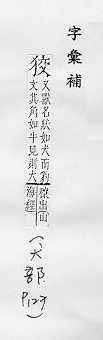 字彙補
狡
又獸名狀如犬而豹
文其角如牛見則大
穰出山
海經
(犬部 P127)